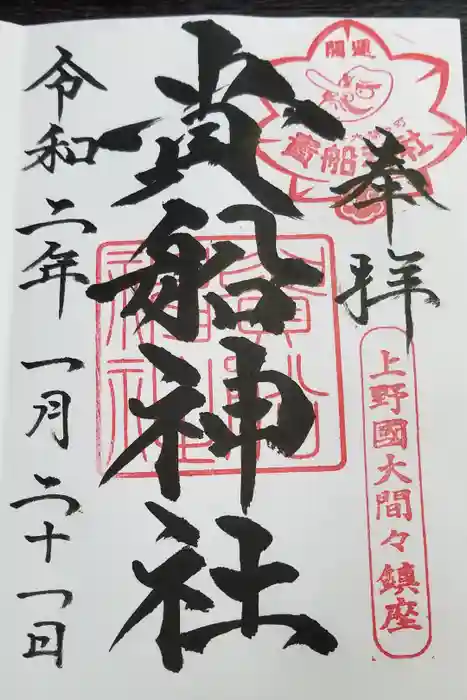 開運
貴船神社
奉拝
上野國大間々鎮座
貴船神社
令和二年一月二十一日